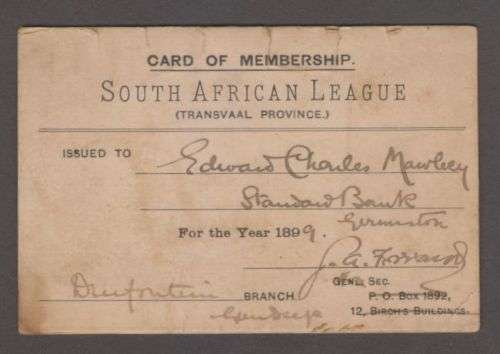 CARD OF MEMBERSHIP.
SOUTH AFRICAN LEAGUE
(TRANSVAAL PROVINCE.)
ISSUED TO Edward Charles Mawbey
Standard Bank
Germiston
For the Year 1899.
GENL. SEC.
BRANCH P. O. Box 1892,
12, BIRCH'S BUILDINGS.